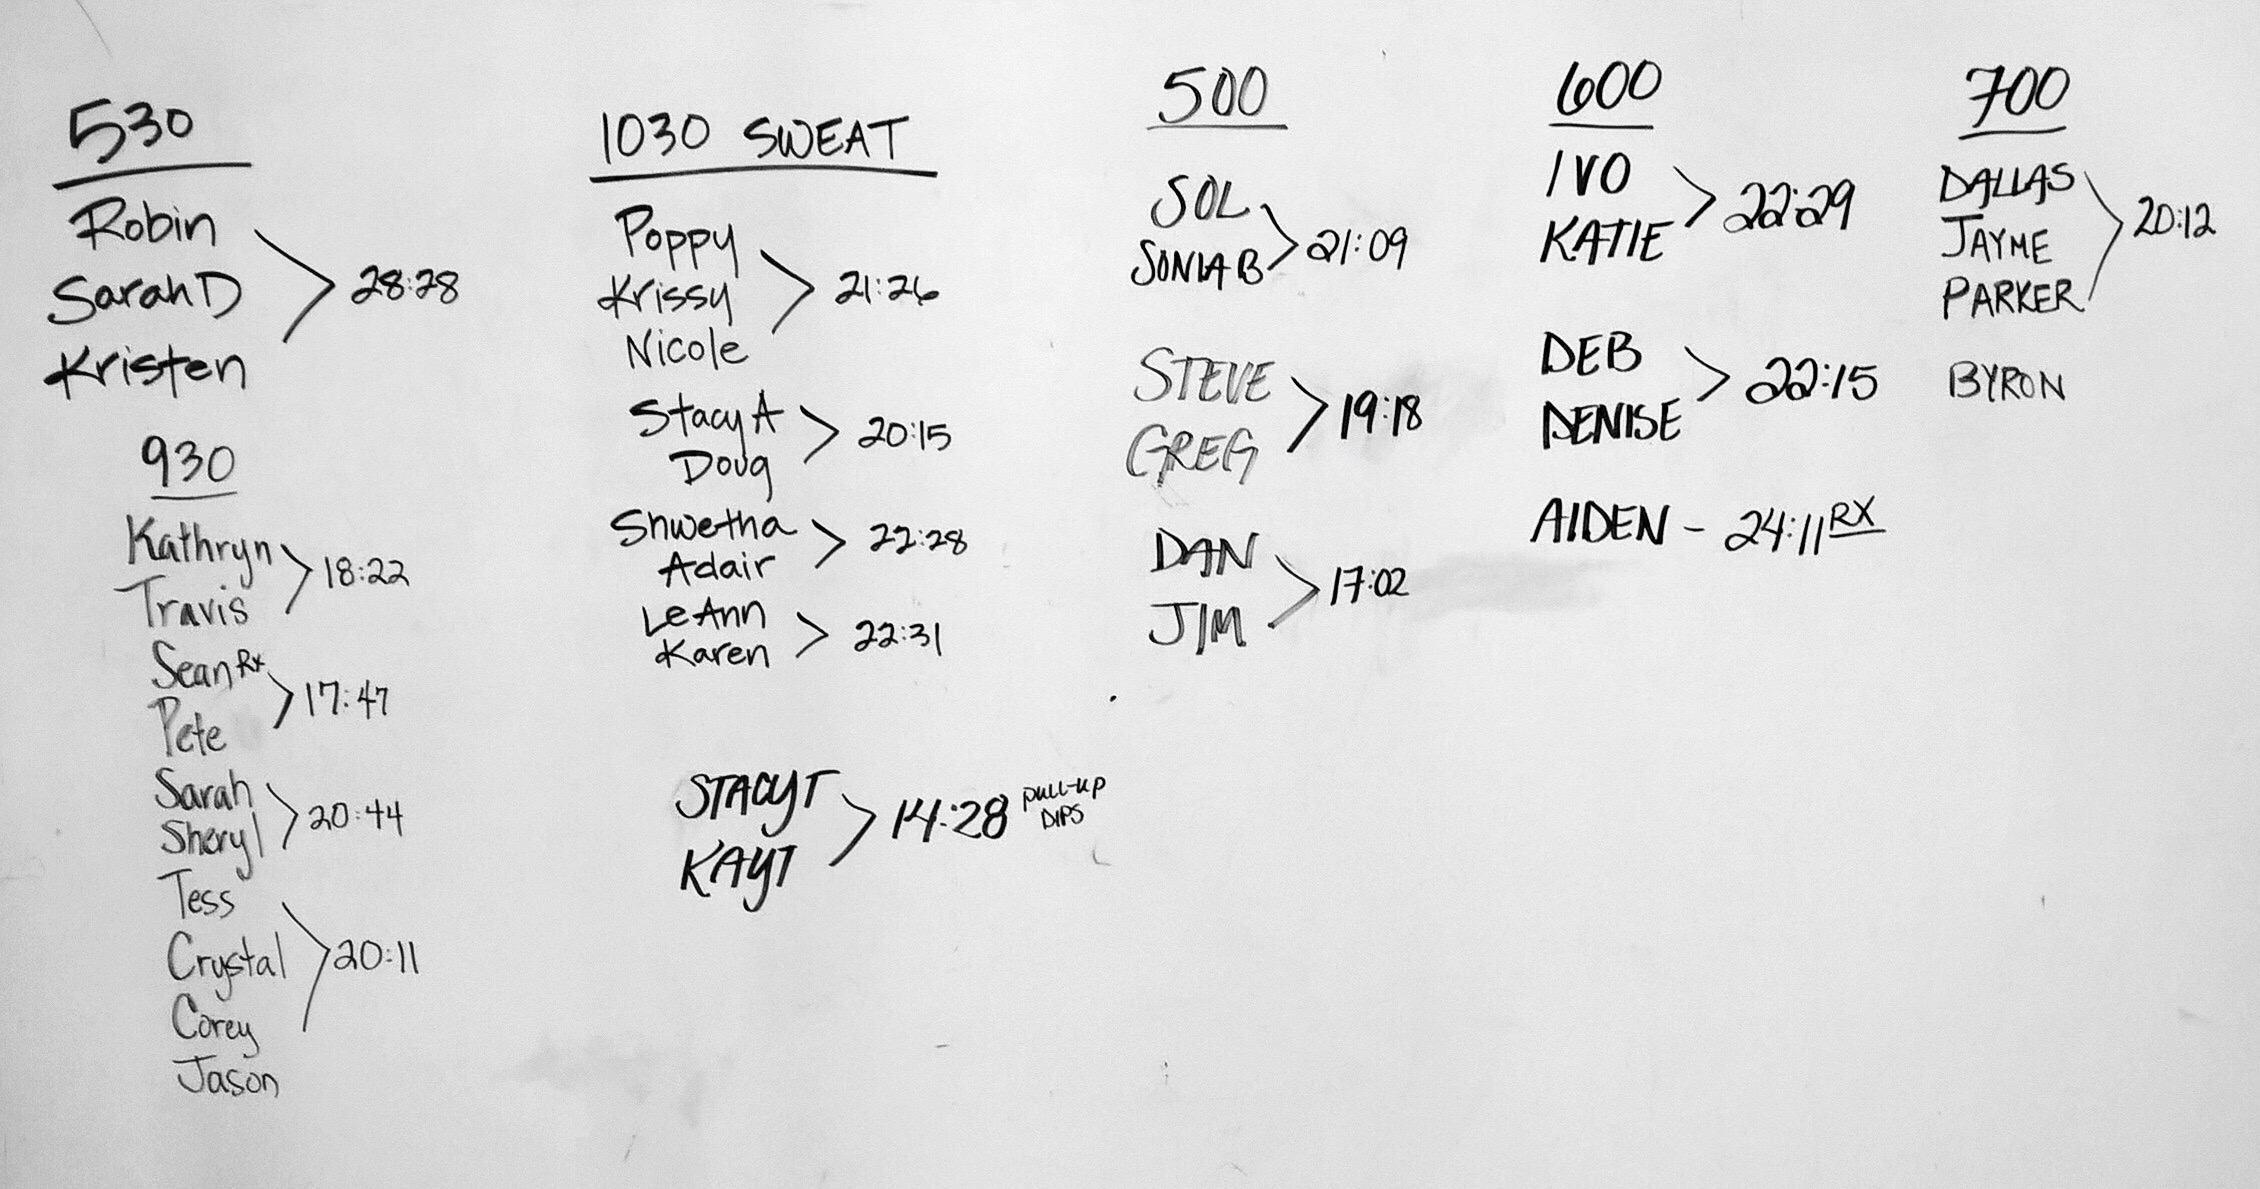 530
Robin
Sarah D
Kristen
28:28
930
Kathryn
Travis
18:22
Sean Rx
Pete
17:47
Sarah
Sheryl
20:44
Tess
Crystal
Corey
Jason
20:11
1030 SWEAT
Poppy
Krissy
Nicole
21:26
Stacy A
Doug
20:15
Shwetha
Adair
22:28
LeAnn
Karen
22:31
STACY T
KAYT
14:28 PULL-UP
DIPS
500
SOL
SONIA B
21:09
STEVE
GREG
19:18
DAN
JIM
17:02
600
IVO
KATIE
22:29
DEB
DENISE
22:15
AIDEN - 24:11 RX
700
DALLAS
JAYME
PARKER
20:12
BYRON